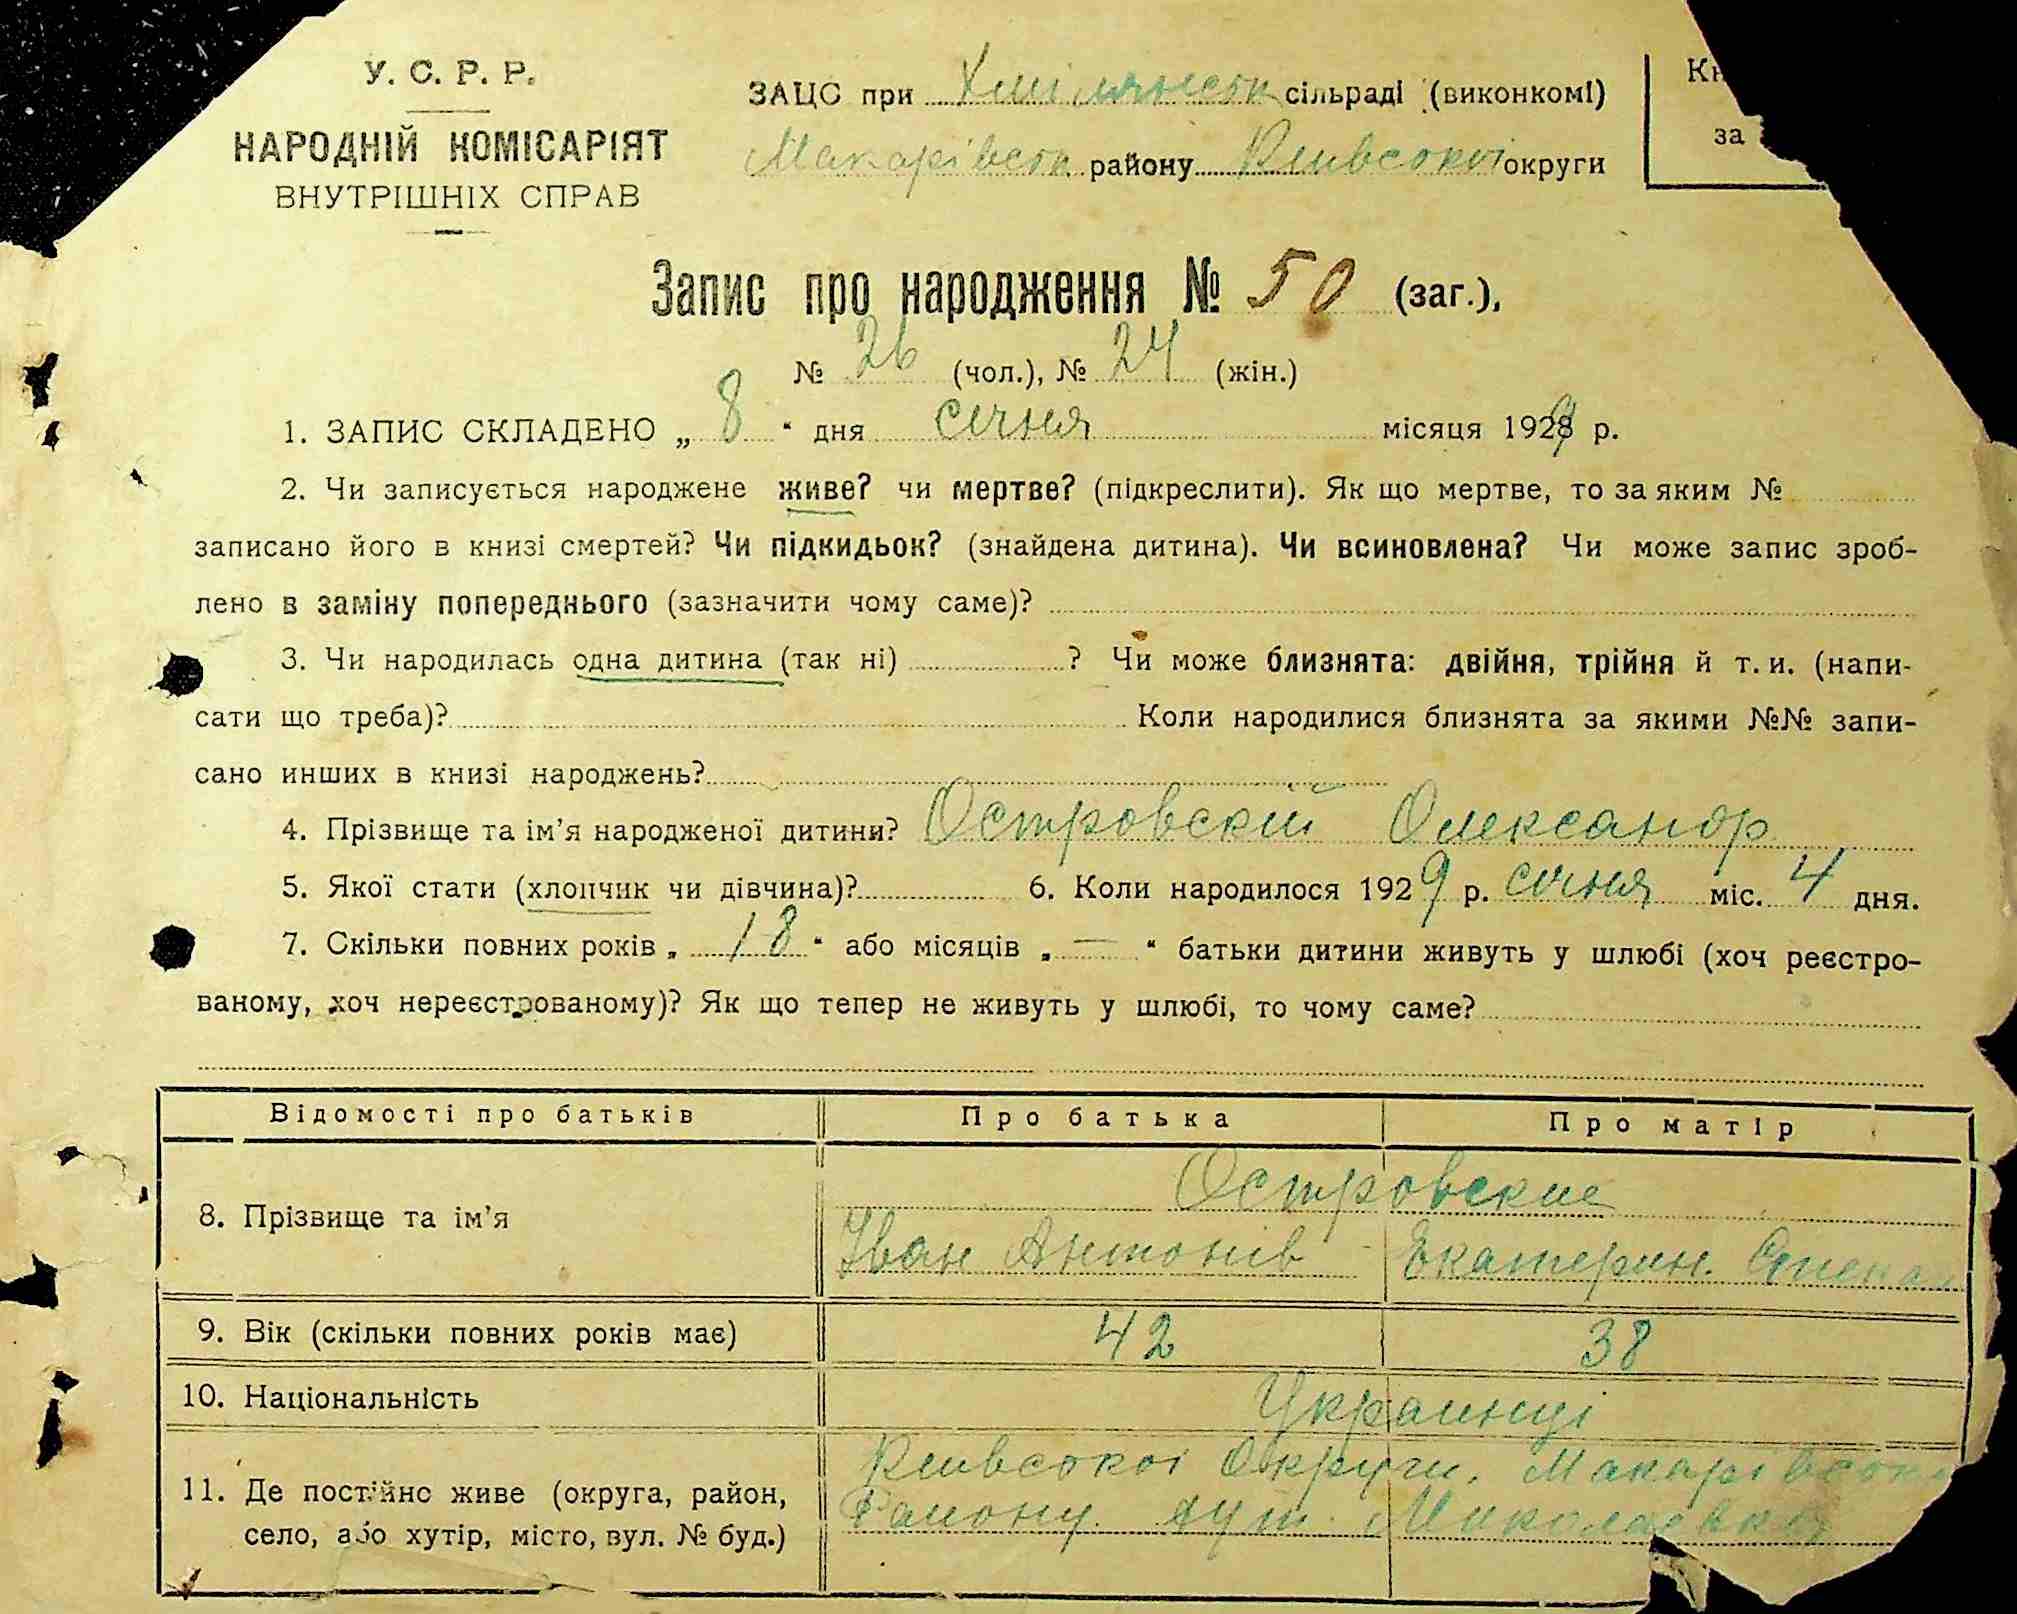 У. С. Р. Р.
НАРОДНІЙ КОМІСАРІЯТ
ВНУТРІШНІХ СПРАВ
ЗАЦС при Хмілянськ сільраді (виконкомі)
Макарівськ району Київської округи
Кн
за
Запис про народження № 50 (заг.),
№ 26 (чол.), № 24 (жін.)
1. ЗАПИС СКЛАДЕНО „ 8 “ дня січня місяця 1929 р.
2. Чи записується народжене живе? чи мертве? (підкреслити). Як що мертве, то за яким №
записано його в книзі смертей? Чи підкидьок? (знайдена дитина). Чи всиновлена? Чи може запис зроб-
лено в заміну попереднього (зазначити чому саме)?
3. Чи народилась одна дитина (так ні) ? Чи може близнята: двійня, трійня й т. и. (напи-
сати що треба)? Коли народилися близнята за якими №№ запи-
сано инших в книзі народжень?
4. Прізвище та ім’я народженої дитини? Островскій Олександр
5. Якої стати (хлопчик чи дівчина)? 6. Коли народилося 1929 р. січня міс. 4 дня.
7. Скільки повних років „ 18 “ або місяців „ — “ батьки дитини живуть у шлюбі (хоч реєстро-
ваному, хоч нереєстрованому)? Як що тепер не живуть у шлюбі, то чому саме?
Відомості про батьків Про батька Про матір
Островские
8. Прізвище та ім’я
Іван Антонів Екатерин. Степан
9. Вік (скільки повних років має) 42 38
10. Національність Украинці
Київської Округи. Макарівськ
11. Де постійно живе (округа, район,
Району хут. Миколаевка
село, або хутір, місто, вул. № буд.)